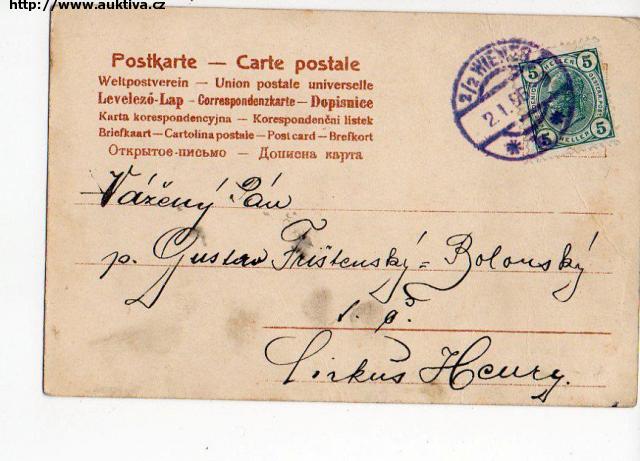 http://www.auktiva.cz
Postkarte — Carte postale
Weltpostverein — Union postale universelle
Levelező-Lap — Correspondenzkarte — Dopisnice
Karta korespondencyjna — Korespondenční listek
Briefkaart — Cartolina postale — Post card — Brefkort
Открытое-письмо — Дописна карта
2/2 WIENER
2.1.
5 5
5 5
HELLER
Vážený Pán
p. Gustav Frištenský = Bolonský
Cirkus Henry.